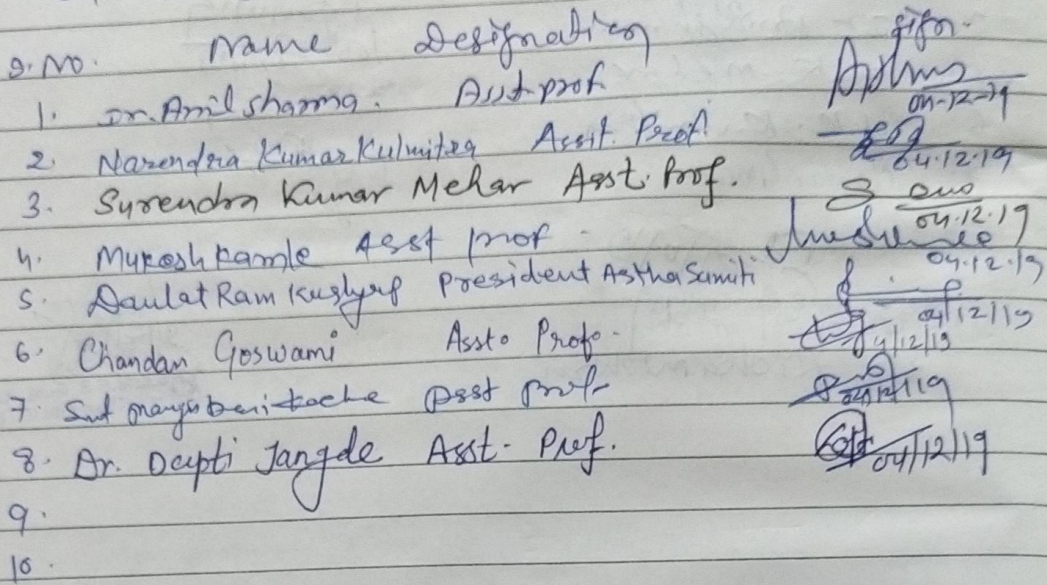 S.No. Name Designation Sign.
1. Dr. Anil Sharma. Asst. prof. 04-12-19
2. Narendra Kumar Kulmitra Assit. Prof. 04.12.19
3. Surendra Kumar Mehar Asst. Prof. 04.12.19
4. Mukesh Kamle Asst prof 04.12.19
5. Daulat Ram Kashyap President Astha Samiti 04/12/19
6. Chandan Goswami Asst. Prof. 4/12/19
7. Smt Asst Prof. 04/12/19
8. Dr. Depti Jangde Asst. Prof. 04/12/19
9.
10.